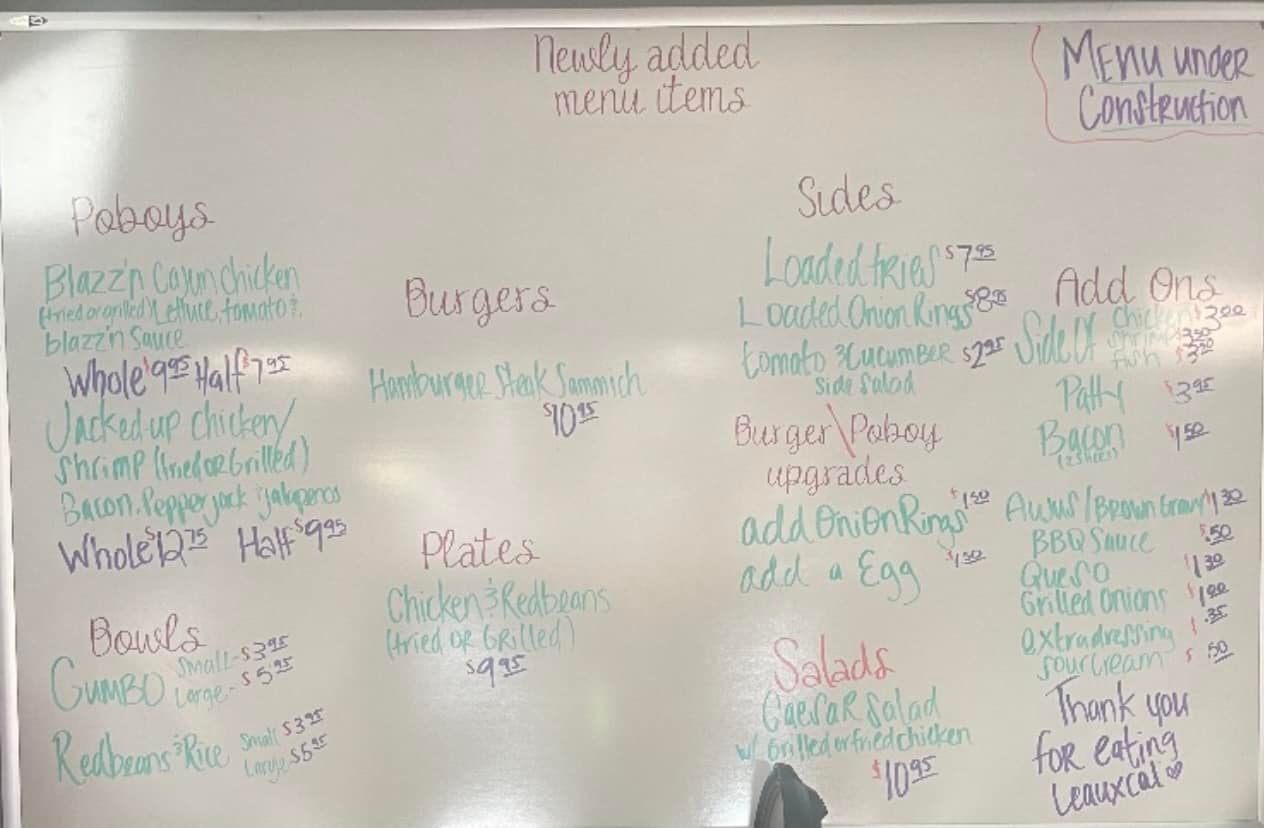 Newly added
menu items
Menu under
Construction
Poboys
Blazz'n Cajun Chicken
(fried or grilled) Lettuce, tomato &
blazz'n sauce
Whole $9.95 Half $7.95
Jacked up chicken/
Shrimp (fried or Grilled)
Bacon, Pepper jack & jalapenos
Whole $12.75 Half $9.95
Bowls
Gumbo Small - $3.95
Large - $5.95
Redbeans & Rice Small $3.95
Large $5.95
Burgers
Hamburger Steak Sammich
$10.95
Plates
Chicken & Redbeans
(fried or Grilled)
$9.95
Sides
Loaded fries $7.95
Loaded Onion Rings $8.95
tomato & Cucumber $2.95
side salad
Burger\Poboy
upgrades
add Onion Rings $1.50
add a Egg $1.50
Salads
Caesar Salad
w/ Grilled or fried chicken
$10.95
Add Ons
Side Of Chicken $3.00
shrimp $3.50
fish
Patty $3.95
Bacon $1.50
Aujus/Brown Gravy
BBQ Sauce $.50
Queso
Grilled Onions $1.00
extra dressing $.35
sour cream $.50
Thank you
for eating
Leauxcal ♡